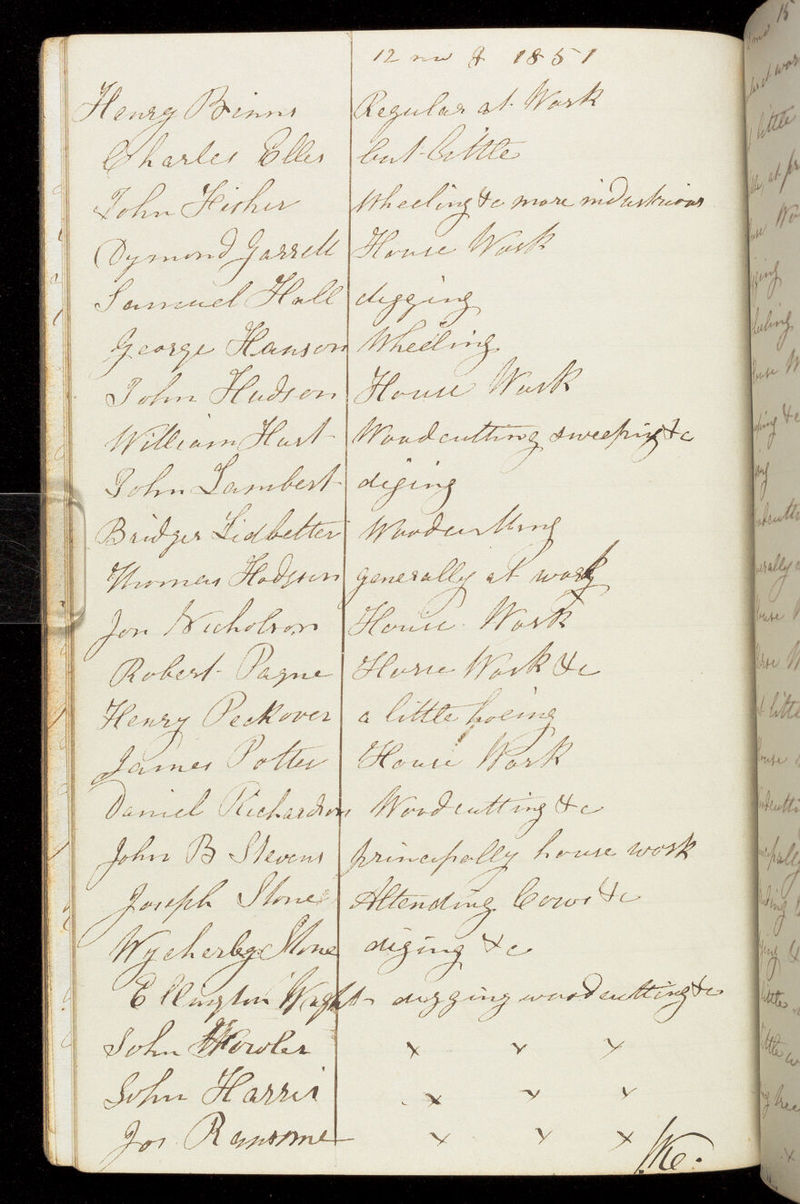 12 mo 1851
Henry Binns Regular at Work
Charles Elles but little
John Fisher Wheeling &c more industrious
Dymond Garrett House Work
Samuel Hall digging
George Hanson Wheeling
John Hudson House Work
William Hart Woodcutting sweeping &c
John Lambert diging
Bridger Lidbetter Woodcutting
Thomas Hodgson generally at work
Jon Nicholson House Work
Robert Payne House Work &c
Henry Peckover a little hoeing
James Potter House Work
Daniel Richardson Woodcutting &c
John B Stevens principally house work
Joseph Stone Attending Cows &c
Wycherley Stone diging &c
Ellington Wright digging woodcutting &c
John Fowler x x x
John Harris x x x
Jos Ransome x x x